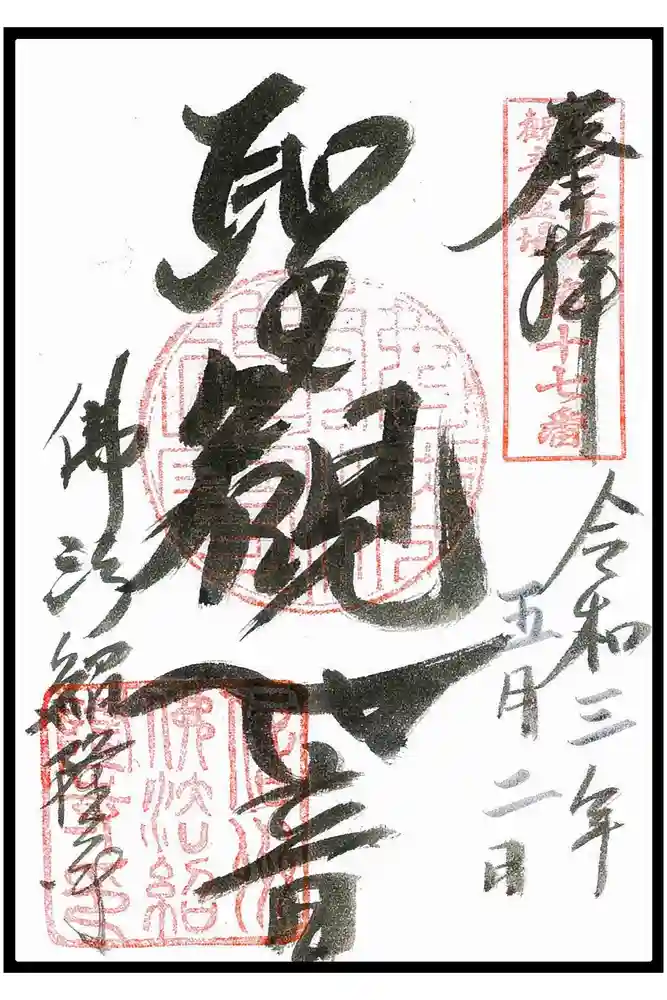 奉拝
十七番
観音霊場
令和三年
五月二日
聖観世音
佛法紹隆寺
佛法紹